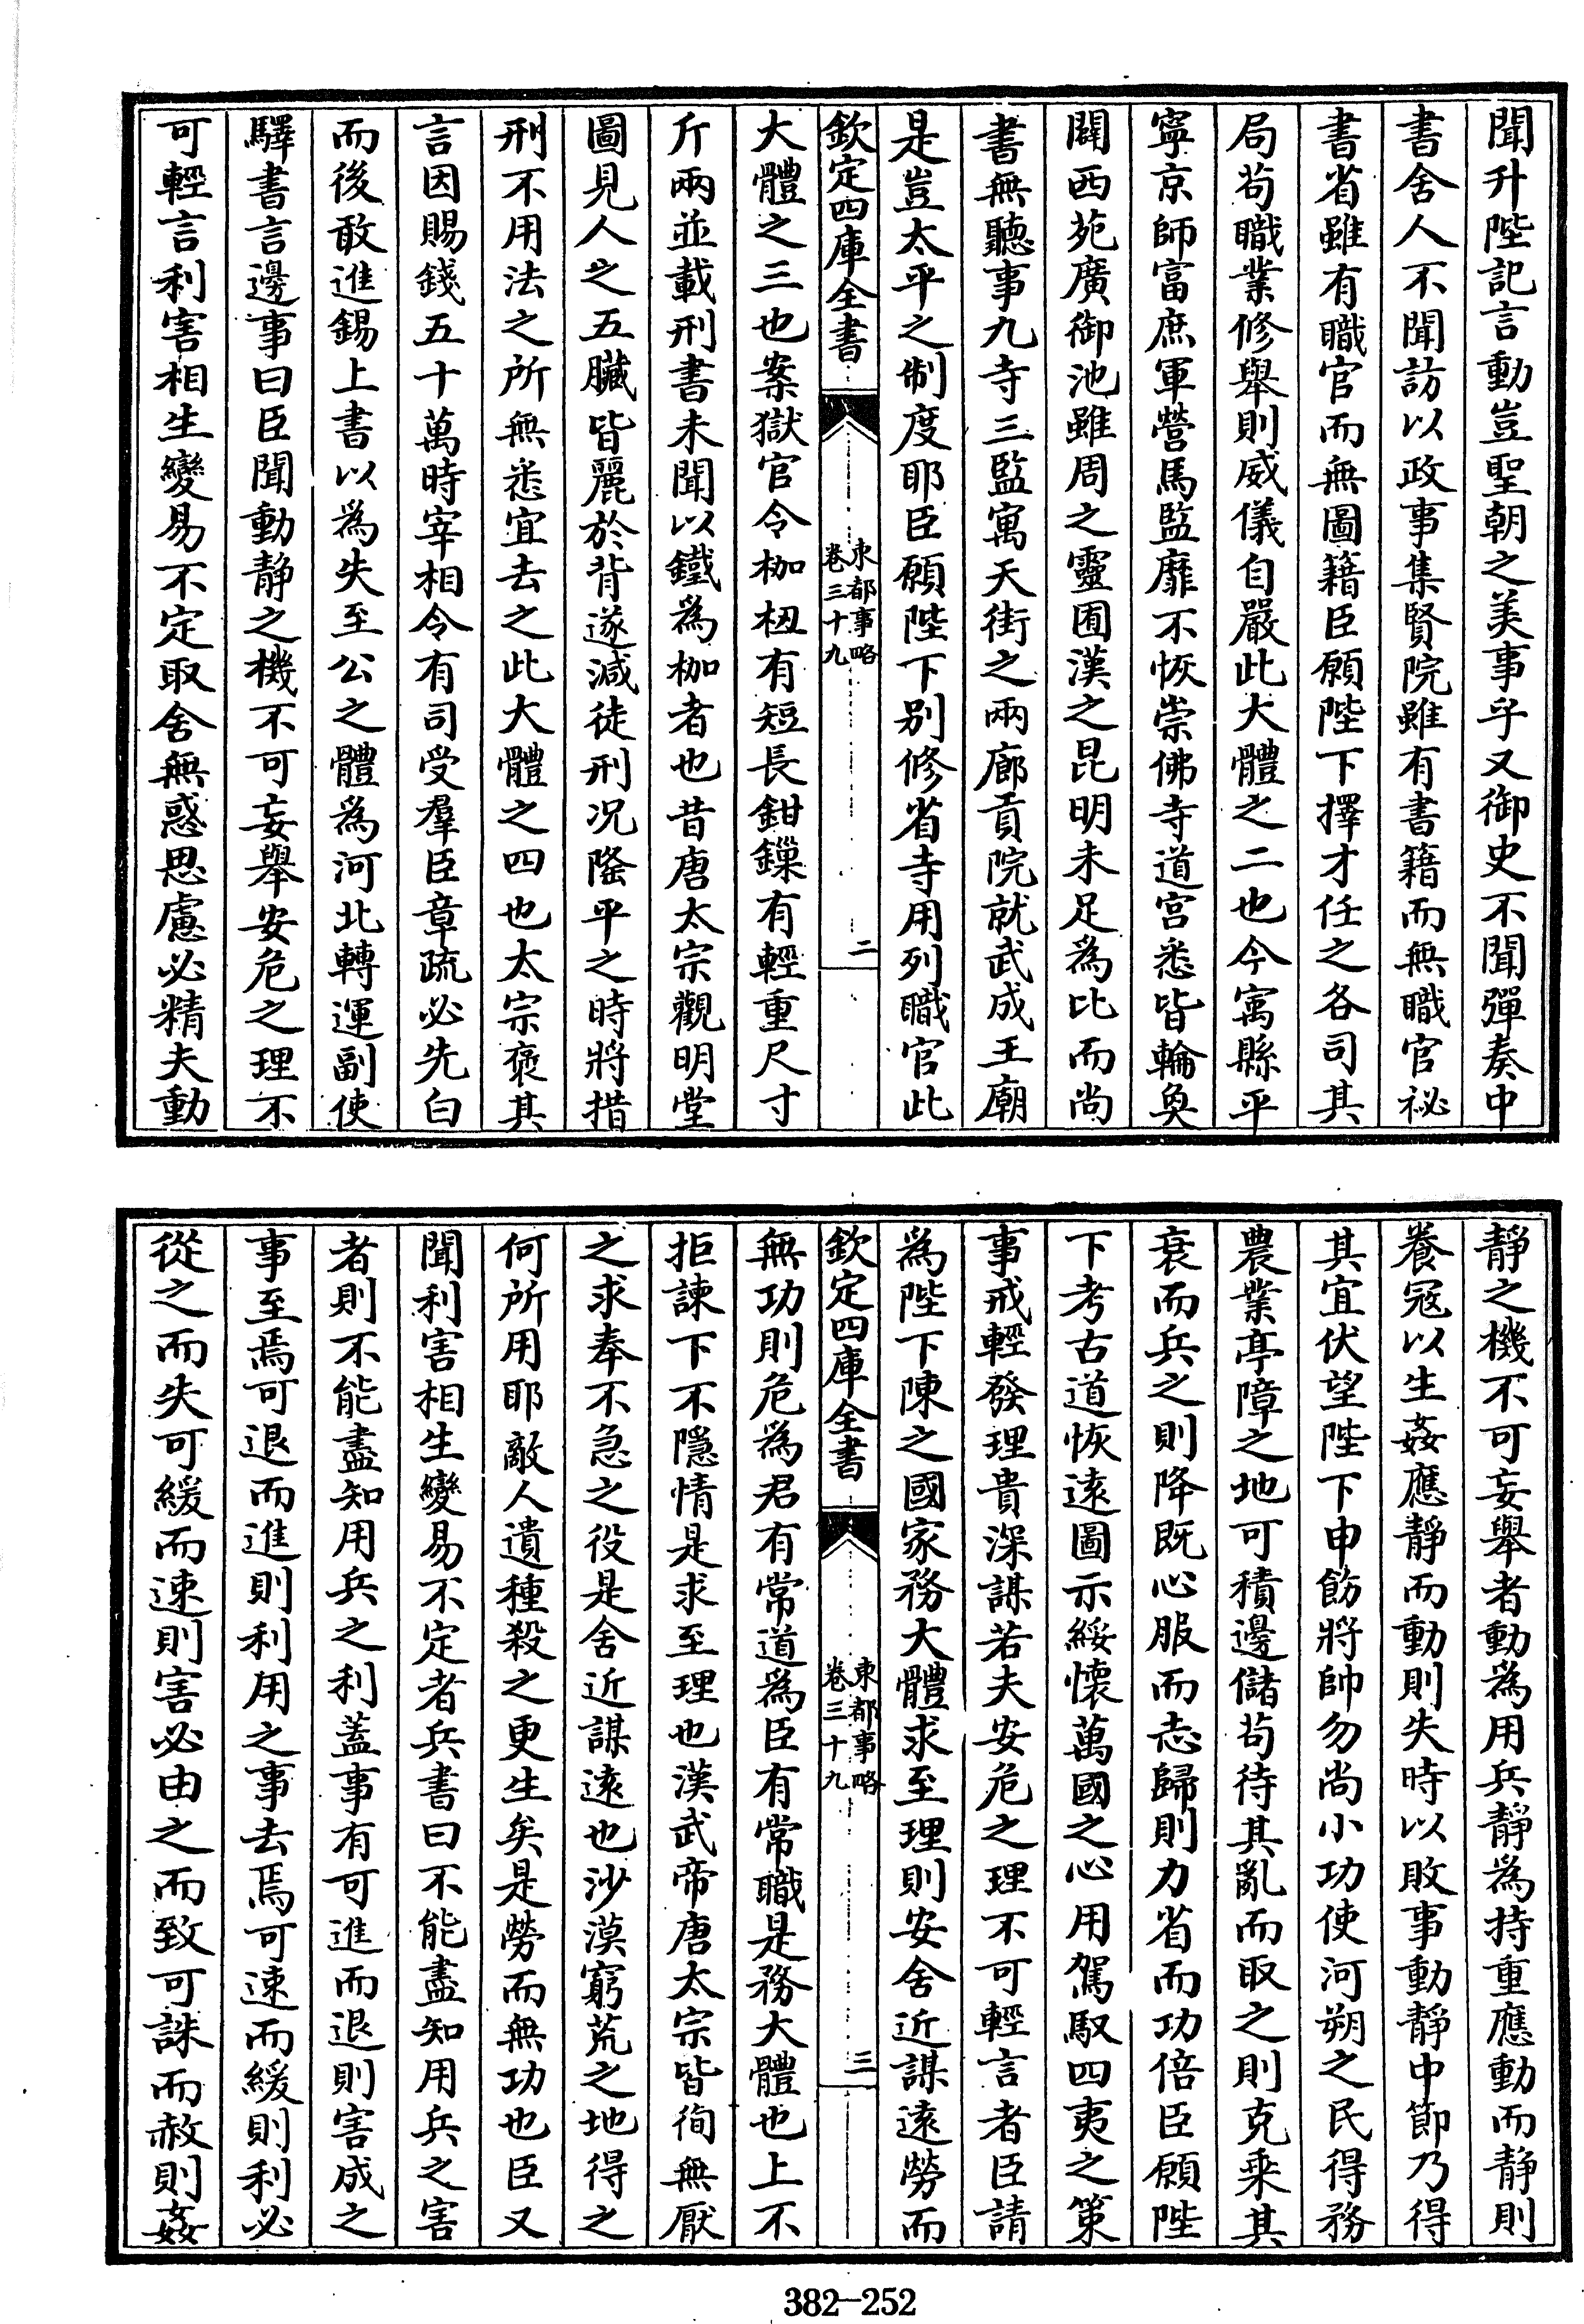 聞升陛記言動豈聖朝之美事乎又御史不聞彈奏中
書舍人不聞訪以政事集賢院雖有書籍而無職官祕
書省雖有職官而無圖籍臣願陛下擇才任之各司其
局苟職業修舉則威儀自嚴此大體之二也今寓縣平
寧京師富庶軍營馬監靡不恢崇佛寺道宫悉皆輪奐
闢西苑廣御池雖周之靈囿漢之昆明未足為比而尚
書無聽事九寺三監寓天街之兩廊貢院就武成王廟
是豈太平之制度耶臣願陛下别修省寺用列職官此
欽定四庫全書
東都事略
卷三十九
二
大體之三也案獄官令枷杻有短長鉗鏁有輕重尺寸
斤兩並載刑書未聞以鐵為枷者也昔唐太宗觀明堂
圖見人之五臟皆麗於背遂減徒刑况隆平之時將措
刑不用法之所無悉宜去之此大體之四也太宗褒其
言因賜錢五十萬時宰相令有司受羣臣章疏必先白
而後敢進錫上書以為失至公之體為河北轉運副使
驛書言邊事曰臣聞動静之機不可妄舉安危之理不
可輕言利害相生變易不定取舍無惑思慮必精夫動
静之機不可妄舉者動為用兵静為持重應動而静則
養寇以生姦應静而動則失時以敗事動静中節乃得
其宜伏望陛下申飭將帥勿尚小功使河朔之民得務
農業亭障之地可積邊儲苟待其亂而取之則克乘其
衰而兵之則降既心服而志歸則力省而功倍臣願陛
下考古道恢遠圖示綏懷萬國之心用駕馭四夷之策
事戒輕發理貴深謀若夫安危之理不可輕言者臣請
為陛下陳之國家務大體求至理則安舍近謀遠勞而
欽定四庫全書
東都事略
卷三十九
三
無功則危為君有常道為臣有常職是務大體也上不
拒諫下不隠情是求至理也漢武帝唐太宗皆徇無厭
之求奉不急之役是舍近謀遠也沙漠窮荒之地得之
何所用耶敵人遺種殺之更生矣是勞而無功也臣又
聞利害相生變易不定者兵書曰不能盡知用兵之害
者則不能盡知用兵之利蓋事有可進而退則害成之
事至焉可退而進則利用之事去焉可速而緩則利必
從之而失可緩而速則害必由之而致可誅而赦則姦
382-252